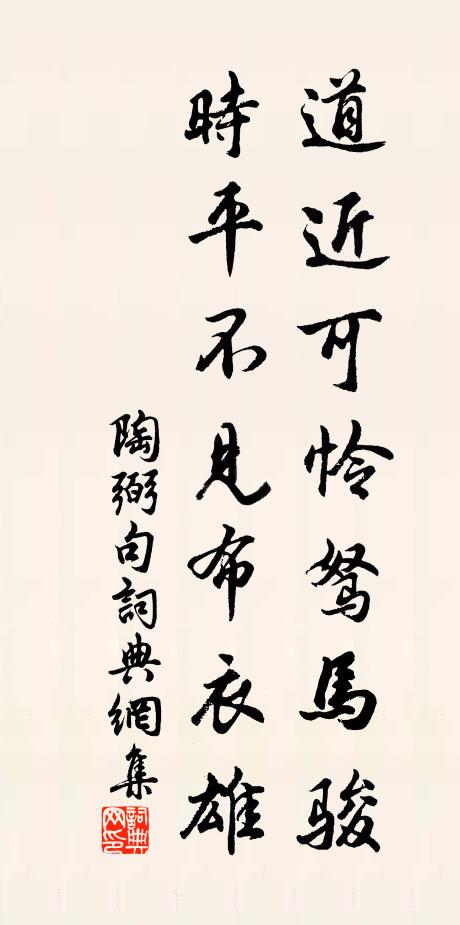 道近可怜駑馬駿
時平不見布衣雄
陶弼句詞典網集
詞典网印